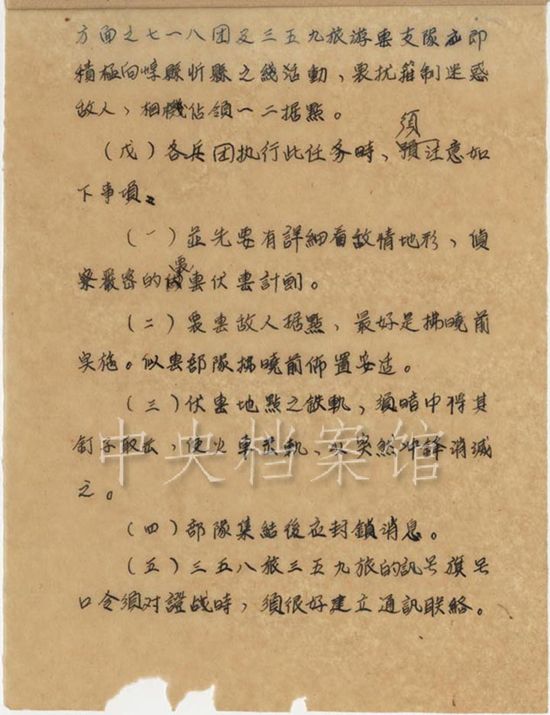 方面之七一八团及三五九旅游击支隊应即
積極向崞縣忻縣之线活動，袭扰箝制迷惑
敌人，相機佔領一二据點。
須
（戊）各兵团执行此任务時、預注意如
下事項：
（一）並先要有詳細看敌情地形、偵
袭
察嚴密的伏击計劃。
（二）袭击敌人据點，最好是拂曉前
实施。伏击部隊拂曉前佈置妥适。
（三）伏击地點之鉄軌，須暗中将其
釘子取出，使火車脱軌，以突然冲鋒消滅
之。
（四）部隊集結後应封鎖消息。
（五）三五八旅三五九旅的訊号旗号
口令須对證战時，須很好建立通訊联络。
中央档案馆